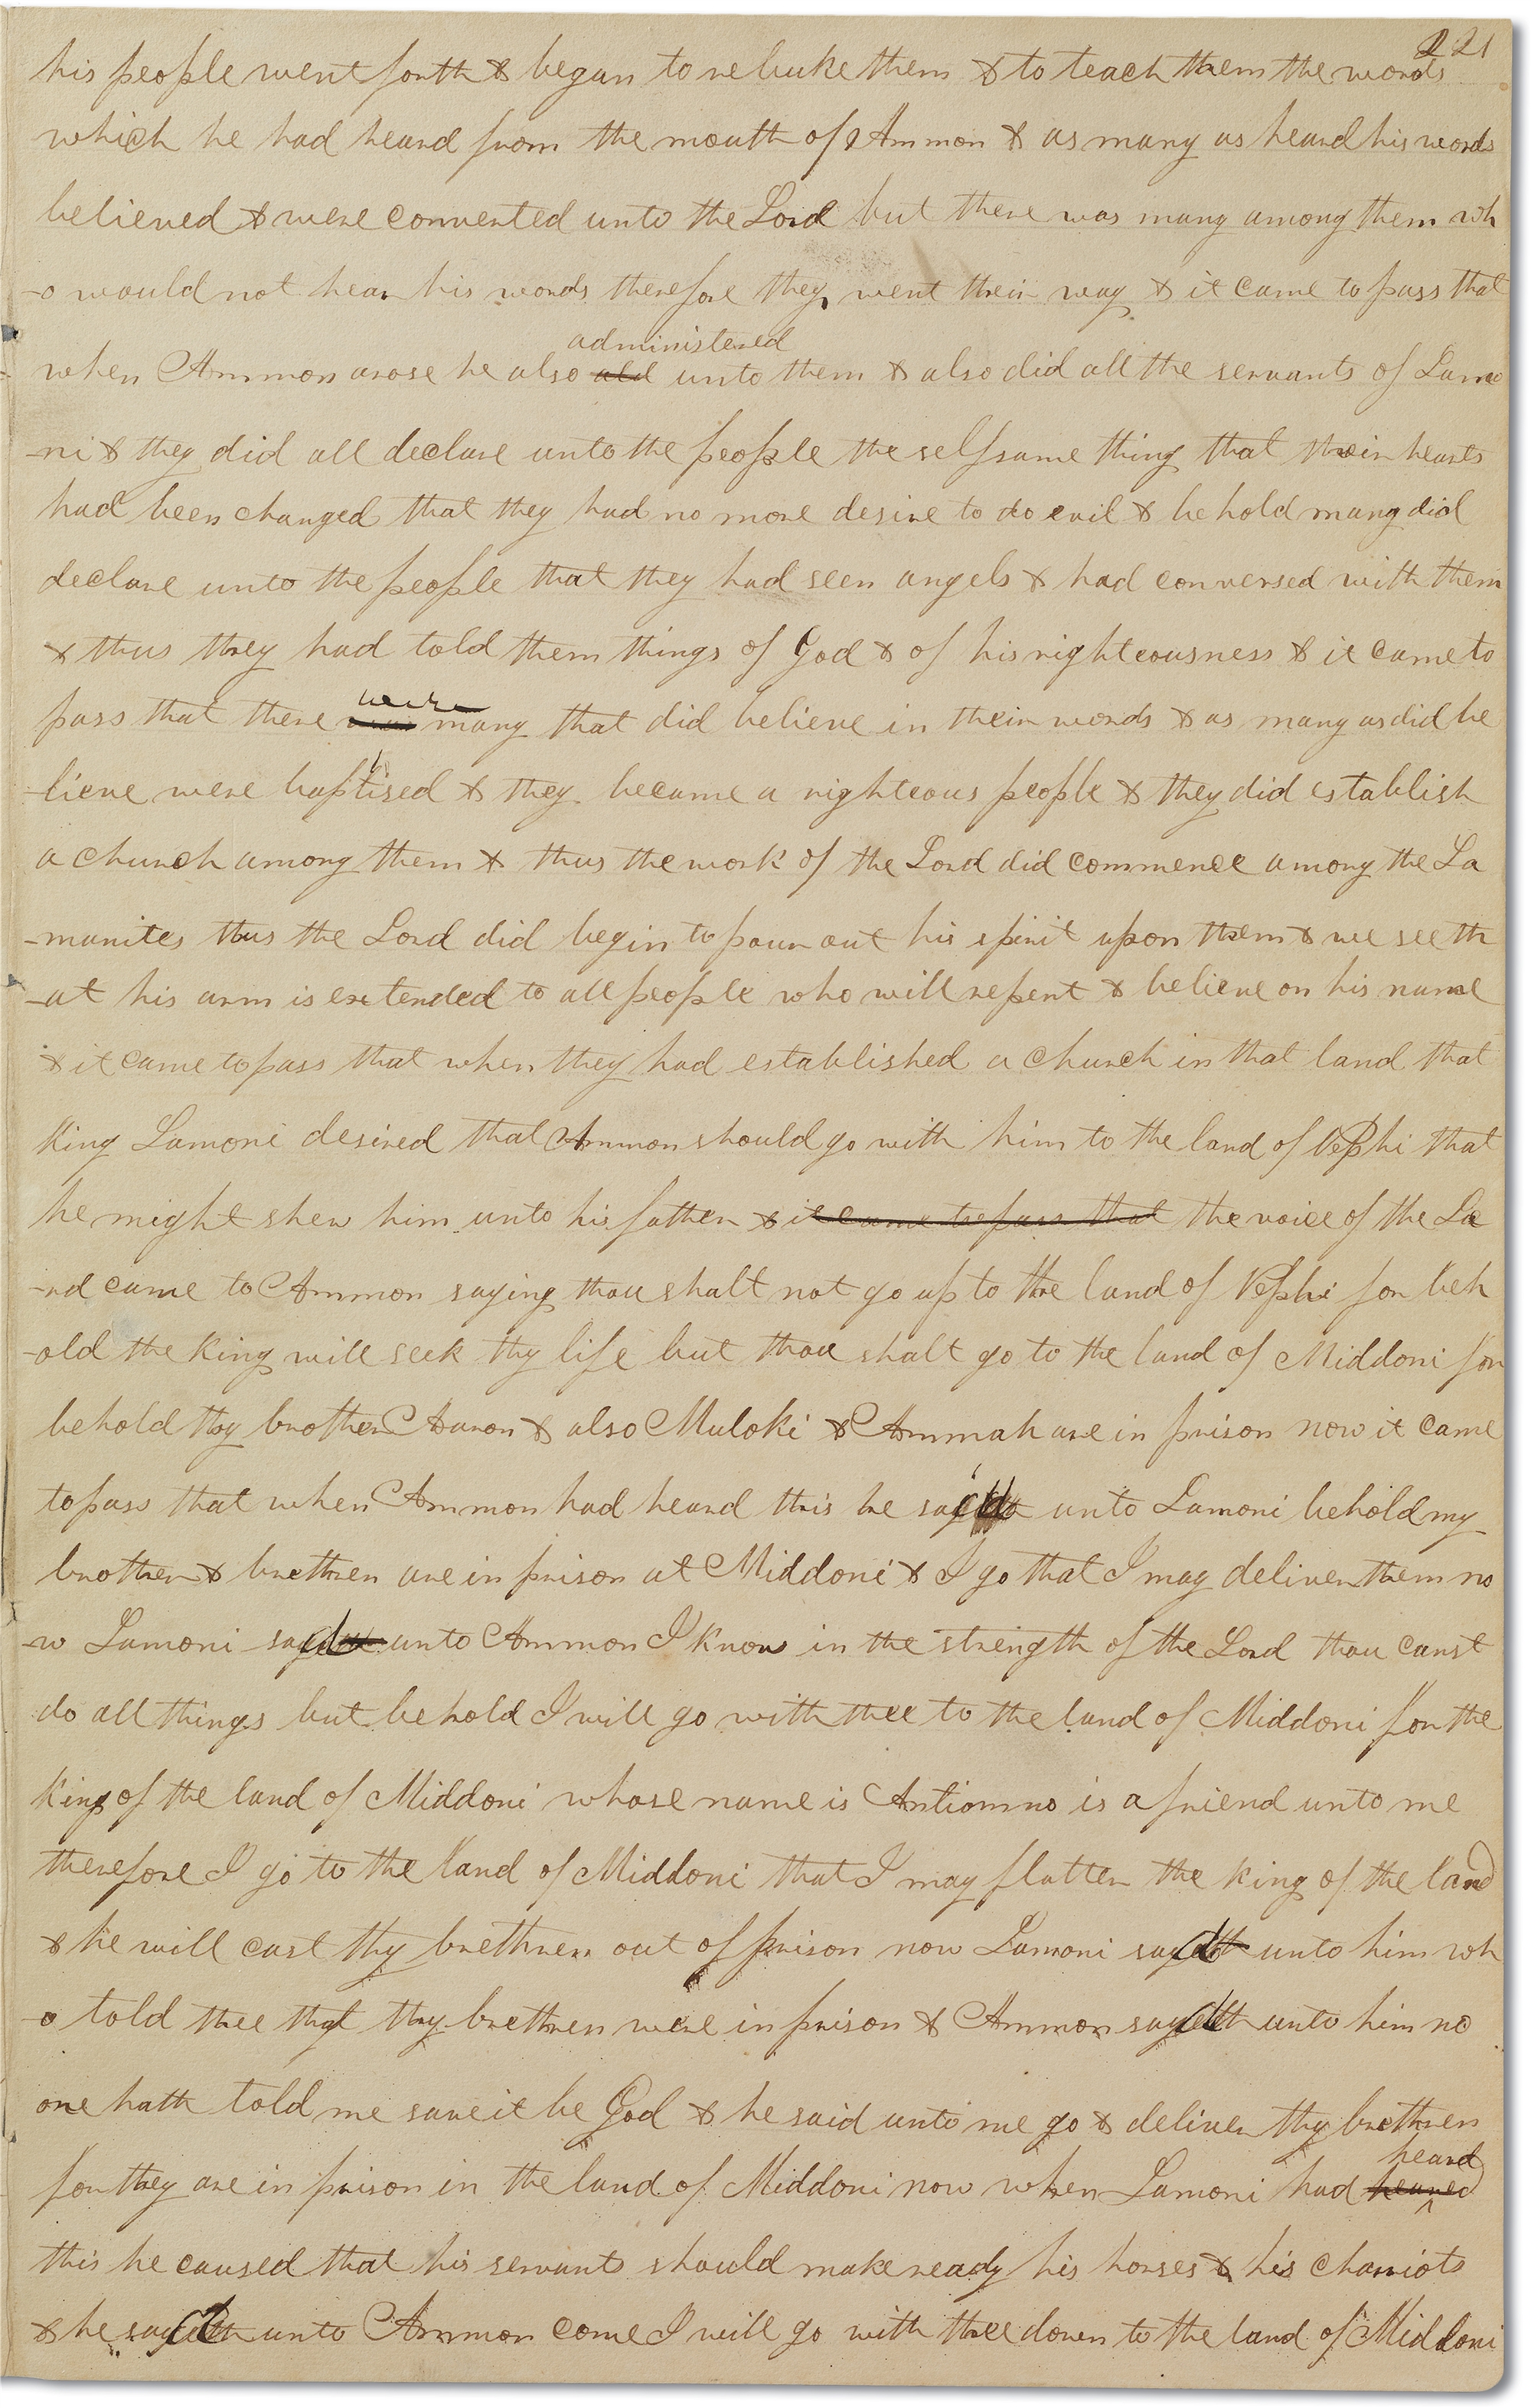 221
his people went forth & began to rebuke them & to teach them the words
which he had heard from the mouth of Ammon & as many as heard his words
believed & were converted unto the Lord but there was many among them wh
-o would not hear his words therefore they went their way & it came to pass that
administered
when Ammon arose he also unto them & also did all the servants of Lamo
-ni & they did all declare unto the people the selfsame thing that their hearts
had been changed that they had no more desire to do evil & behold many did
declare unto the people that they had seen angels & had conversed with them
& thus they had told them things of God & of his righteousness & it came to
were
pass that there many that did believe in their words & as many as did be
-lieve were baptised & they became a righteous people & they did establish
a church among them & thus the work of the Lord did commence among the La
-manites thus the Lord did begin to pour out his spirit upon them & we see th
-at his arm is extended to all people who will repent & believe on his name
& it came to pass that when they had established a church in that land that
king Lamoni desired that Ammon should go with him to the land of Nephi that
he might shew him unto his father & it came to pass that the voice of the Lo
-rd came to Ammon saying thou shalt not go up to the land of Nephi for beh
-old the king will seek thy life but thou shalt go to the land of Middoni for
behold thy brother Aaron & also Muloki & Ammah are in prison now it came
to pass that when Ammon had heard this he said unto Lamoni behold my
brother & brethren are in prison at Middoni & I go that I may deliver them no
-w Lamoni said unto Ammon I know in the strength of the Lord thou canst
do all things but behold I will go with thee to the land of Middoni for the
king of the land of Middoni whose name is Antiomno is a friend unto me
therefore I go to the land of Middoni that I may flatter the king of the land
& he will cast thy brethren out of prison now Lamoni said unto him wh
-o told thee that thy brethren were in prison & Ammon said unto him no
one hath told me save it be God & he said unto me go & deliver thy brethren
heard
for they are in prison in the land of Middoni now when Lamoni had heared
this he caused that his servants should make ready his horses & his chariots
& he said unto Ammon come I will go with thee down to the land of Middoni